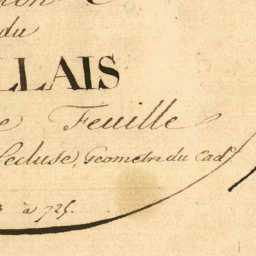 du
LLAIS
e Feuille
Lecluse, Geometre du Cad
à 725.